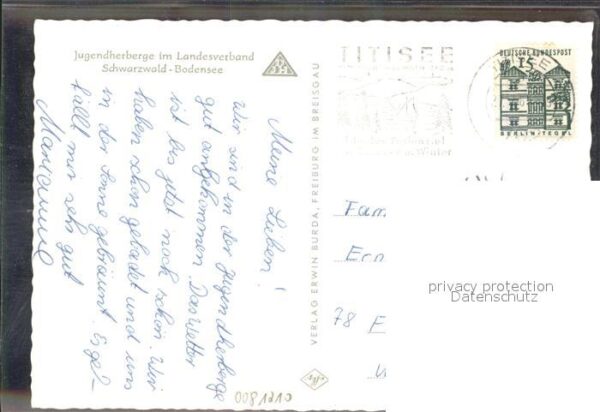 Jugendherberge im Landesverband
Schwarzwald - Bodensee
Meine Lieben!
Wir sind in der Jugendherberge
gut angekommen. Das Wetter
ist bis jetzt noch schön. Wir
haben schon gebadet und uns
in der Sonne gebräunt. Es ge-
fällt mir sehr gut
Marianne
VERLAG ERWIN BURDA, FREIBURG IM BREISGAU
TITISEE
DEUTSCHE BUNDESPOST
15
BERLIN-TEGEL
Fam
Ern
78 F
privacy protection
Datenschutz